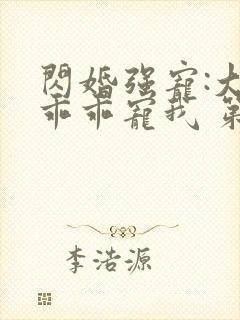 閃婚强寵:大
乖乖寵我 第
李浩源